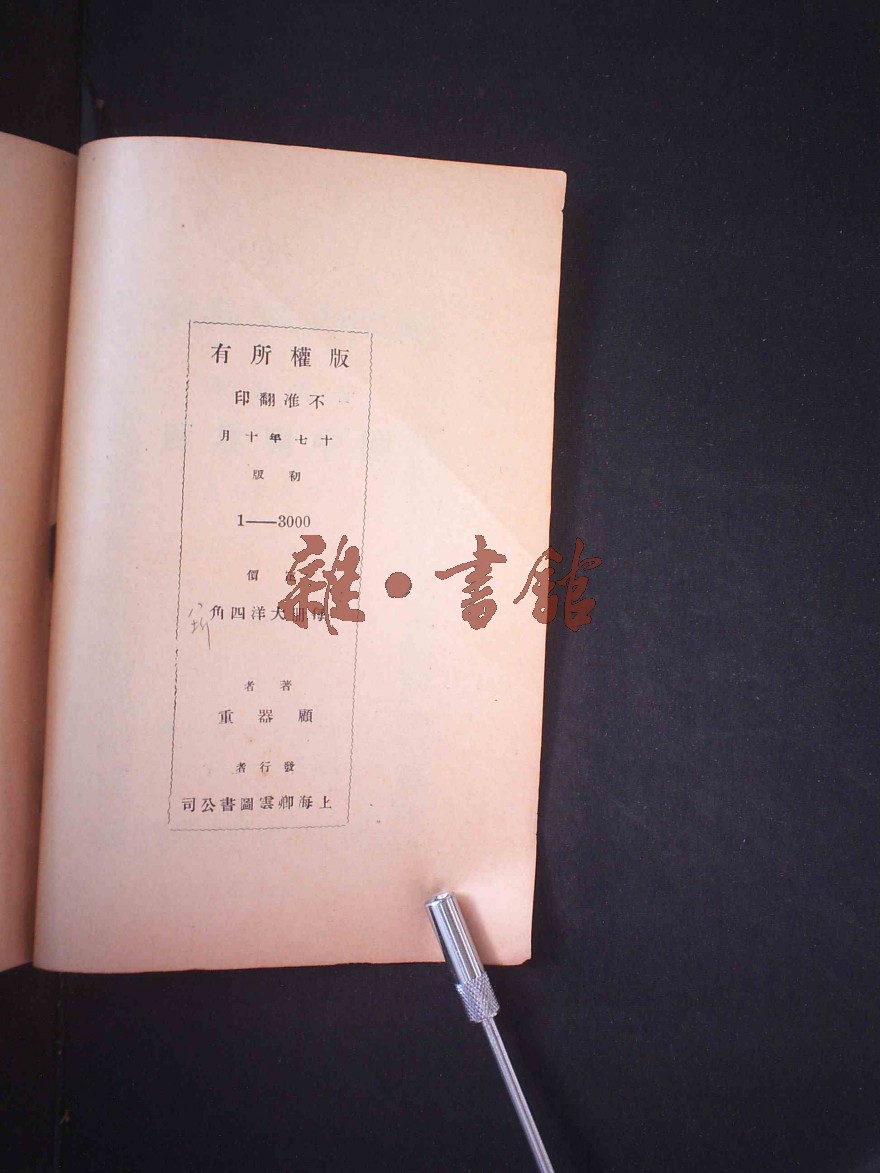 版權所有
不准翻印
十七年十月
初版
1——3000
定價
每冊大洋四角
八折
著者
顧器重
發行者
上海卿雲圖書公司
雜·書館